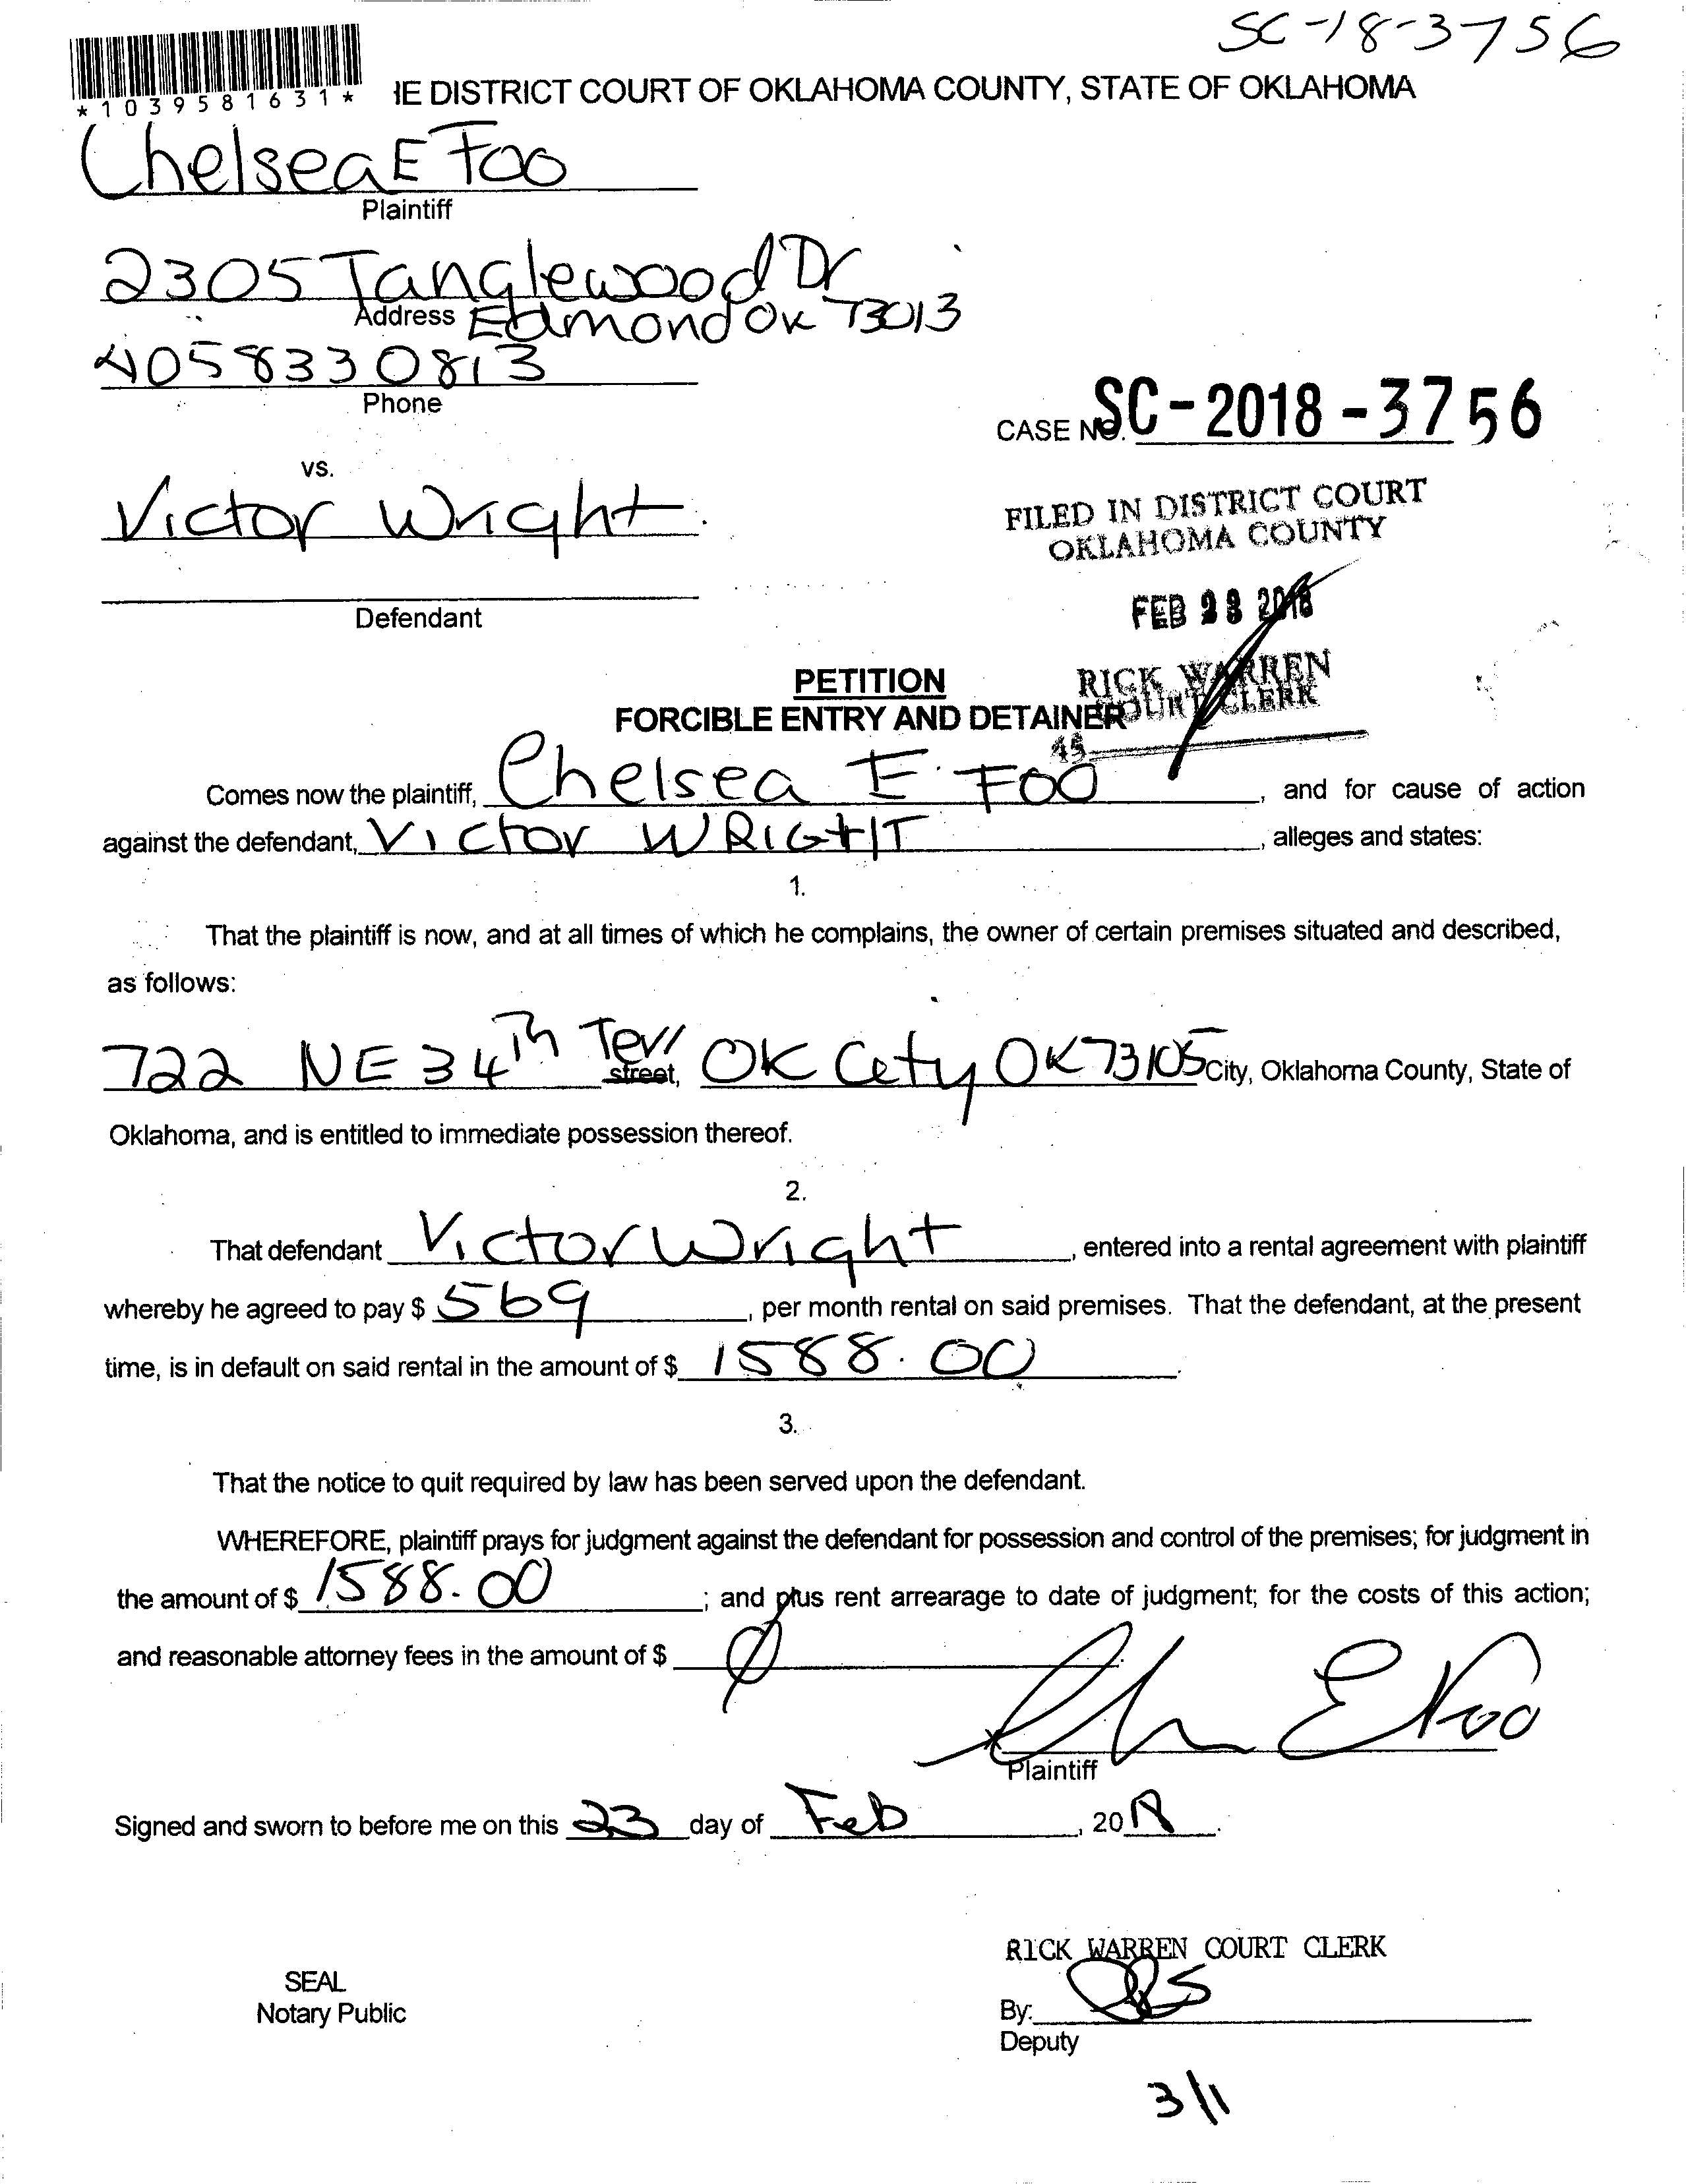 SC-18-3756
*1039581631*
IE DISTRICT COURT OF OKLAHOMA COUNTY, STATE OF OKLAHOMA
Chelsea E Foo
Plaintiff
2305 Tanglewood Dr
Address Edmond OK 73013
4058330813
Phone
CASE NO. SC-2018-3756
vs.
Victor Wright
FILED IN DISTRICT COURT
OKLAHOMA COUNTY
FEB 23 2018
Defendant
RICK WARREN
COURT CLERK
45
PETITION
FORCIBLE ENTRY AND DETAINER
Comes now the plaintiff, Chelsea E Foo, and for cause of action
against the defendant, Victor WRIGHT, alleges and states:
1.
That the plaintiff is now, and at all times of which he complains, the owner of certain premises situated and described,
as follows:
722 NE 34th Terr street, OK City OK 73105 City, Oklahoma County, State of
Oklahoma, and is entitled to immediate possession thereof.
2.
That defendant Victor Wright, entered into a rental agreement with plaintiff
whereby he agreed to pay $ 569, per month rental on said premises. That the defendant, at the present
time, is in default on said rental in the amount of $ 1588.00.
3.
That the notice to quit required by law has been served upon the defendant.
WHEREFORE, plaintiff prays for judgment against the defendant for possession and control of the premises; for judgment in
the amount of $ 1588.00; and plus rent arrearage to date of judgment; for the costs of this action;
and reasonable attorney fees in the amount of $ Ø
x E Foo
Plaintiff
Signed and sworn to before me on this 23 day of Feb, 2018.
RICK WARREN COURT CLERK
SEAL
Notary Public
By:
Deputy
3/1